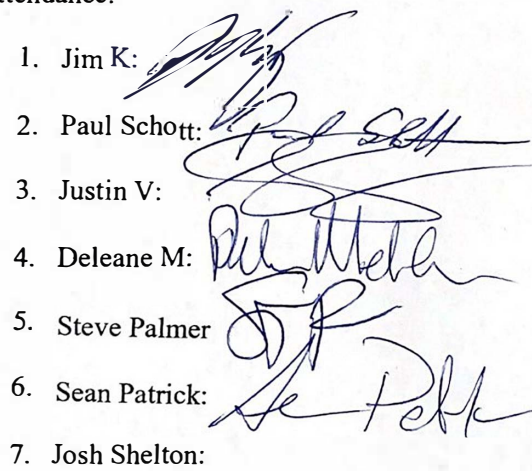 1. Jim K:
2. Paul Schott: Paul Schott
3. Justin V:
4. Deleane M:
5. Steve Palmer SP
6. Sean Patrick:
7. Josh Shelton: